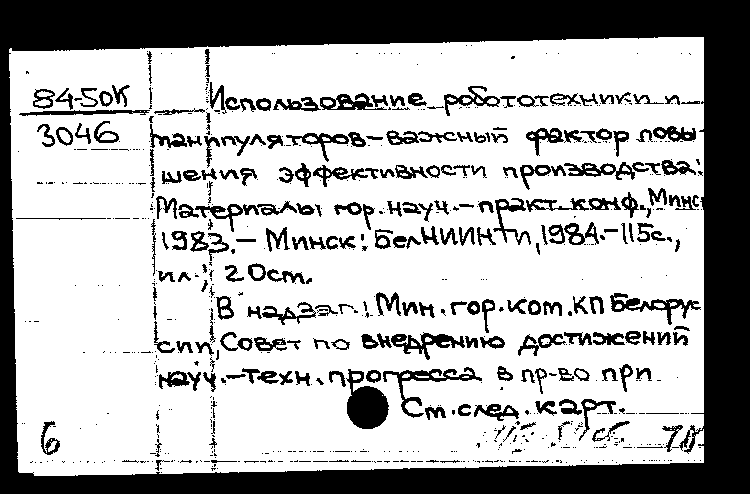 84-50К
3046
Использование робототехники и
манипуляторов-важный фактор повы-
шения эффективности производства:
Материалы гор. науч.-практ. конф., Минск
1983.- Минск: БелНИИНТИ, 1984.-115с.,
ил.; 20см.
В надзаг.: Мин. гор. ком. КП Белорус
сии, Совет по внедрению достижений
науч.-техн. прогресса в пр-во при
См. след. карт.
6